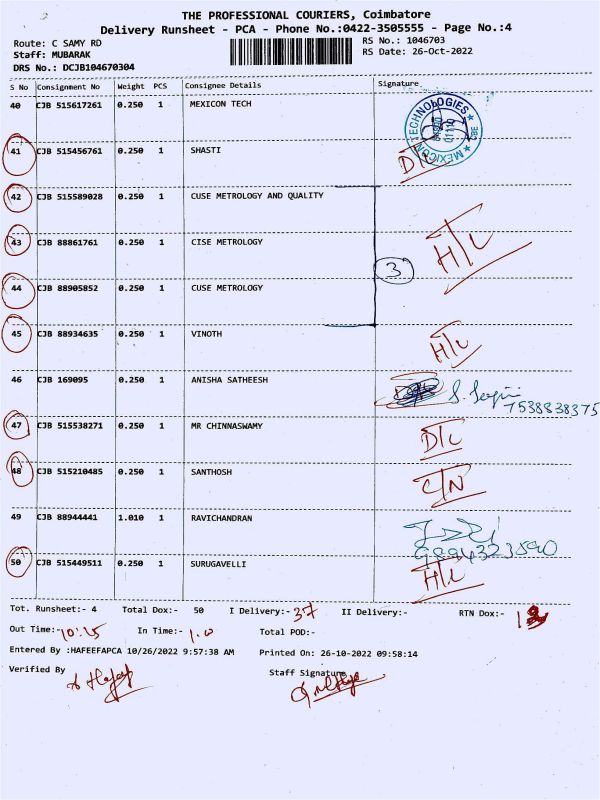 THE PROFESSIONAL COURIERS, Coimbatore
Delivery Runsheet - PCA - Phone No.:0422-3505555 - Page No.:4
Route: C SAMY RD
Staff: MUBARAK
DRS No.: DCJB104670304
RS No.: 1046703
RS Date: 26-Oct-2022
S No Consignment No Weight PCS Consignee Details Signature
40 CJB 515617261 0.250 1 MEXICON TECH
MEXICON TECHNOLOGIES CBE
41 CJB 515456761 0.250 1 SHASTI D/L
42 CJB 515589028 0.250 1 CUSE METROLOGY AND QUALITY
43 CJB 88861761 0.250 1 CISE METROLOGY H/L
3
44 CJB 88905852 0.250 1 CUSE METROLOGY
45 CJB 88934635 0.250 1 VINOTH H/L
46 CJB 169095 0.250 1 ANISHA SATHEESH
7538838375
47 CJB 515538271 0.250 1 MR CHINNASWAMY D/L
48 CJB 515210485 0.250 1 SANTHOSH C/N
49 CJB 88944441 1.010 1 RAVICHANDRAN
9994323590
50 CJB 515449511 0.250 1 SURUGAVELLI H/L
Tot. Runsheet:- 4 Total Dox:- 50 I Delivery:- 37 II Delivery:- RTN Dox:- 13
Out Time:- 10:15 In Time:- 1.0 Total POD:-
Entered By :HAFEEFAPCA 10/26/2022 9:57:38 AM Printed On: 26-10-2022 09:58:14
Verified By Staff Signature